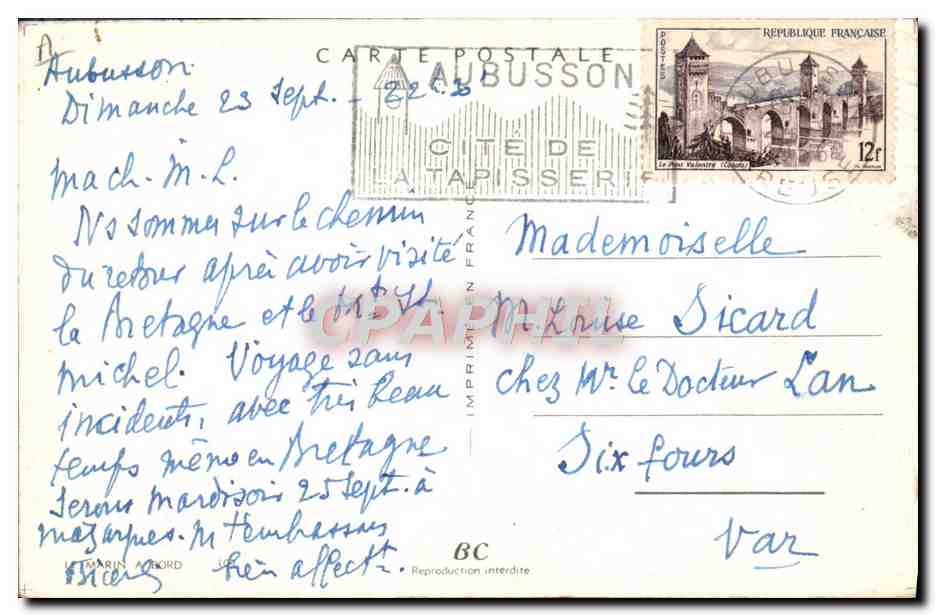 CARTE POSTALE
AUBUSSON
CITÉ DE
LA TAPISSERIE
POSTES
REPUBLIQUE FRANÇAISE
Le Pont Valentré (Cahors)
12f
CREUSE
Aubusson
Dimanche 23 Sept. - 22
Mach. M. L.
Ns sommes sur le chemin
du retour après avoir visité
la Bretagne et le Mt St.
Michel. Voyage sans
incidents, avec très beau
temps même en Bretagne
Serons mardi soir 25 Sept. à
Mazargues. M t'embrassons
bien affectt.
Mademoiselle
M. Louise Sicard
chez Mr. le Docteur Lan
Six fours
Var
IMPRIMÉ EN FRANCE
CPAPHIL
BORD
BC
Reproduction interdite